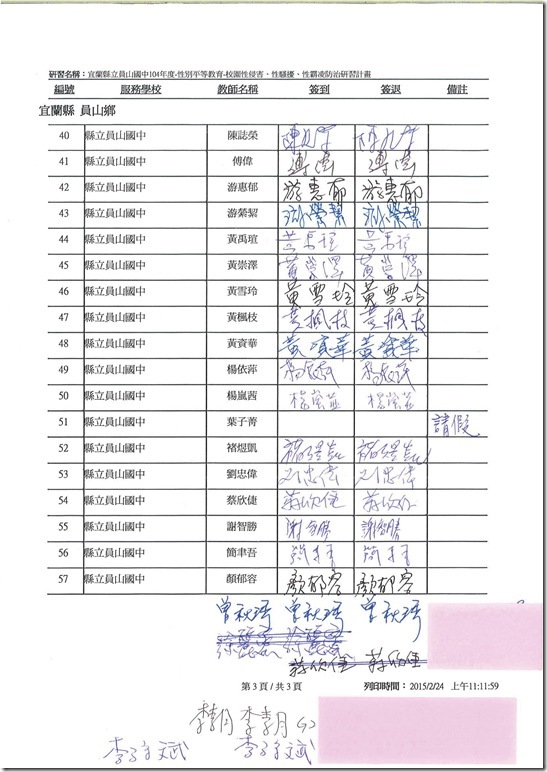 研習名稱：宜蘭縣立員山國中104年度-性別平等教育-校園性侵害、性騷擾、性霸凌防治研習計畫
編號 服務學校 教師名稱 簽到 簽退 備註
宜蘭縣 員山鄉
40 縣立員山國中 陳誌榮
41 縣立員山國中 傅偉
42 縣立員山國中 游惠郁 游惠郁 游惠郁
43 縣立員山國中 游縈絜 游縈絜 游縈絜
44 縣立員山國中 黃禹瑄
45 縣立員山國中 黃崇澤 黃崇澤 黃崇澤
46 縣立員山國中 黃雪玲 黃雪玲 黃雪玲
47 縣立員山國中 黃楓枝 黃楓枝 黃楓枝
48 縣立員山國中 黃資華 黃資華 黃資華
49 縣立員山國中 楊依萍
50 縣立員山國中 楊嵐茜
51 縣立員山國中 葉子菁 請假
52 縣立員山國中 褚煜凱
53 縣立員山國中 劉忠偉 劉忠偉 劉忠偉
54 縣立員山國中 蔡欣倢
55 縣立員山國中 謝智勝 謝智勝 謝智勝
56 縣立員山國中 簡聿吾
57 縣立員山國中 顏郁容 顏郁容 顏郁容
曾秋琇 曾秋琇 曾秋琇
第 3 頁 / 共 3 頁 列印時間： 2015/2/24 上午11:11:59